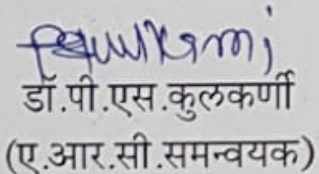 डॉ.पी.एस.कुलकर्णी
(ए.आर.सी.समन्वयक)